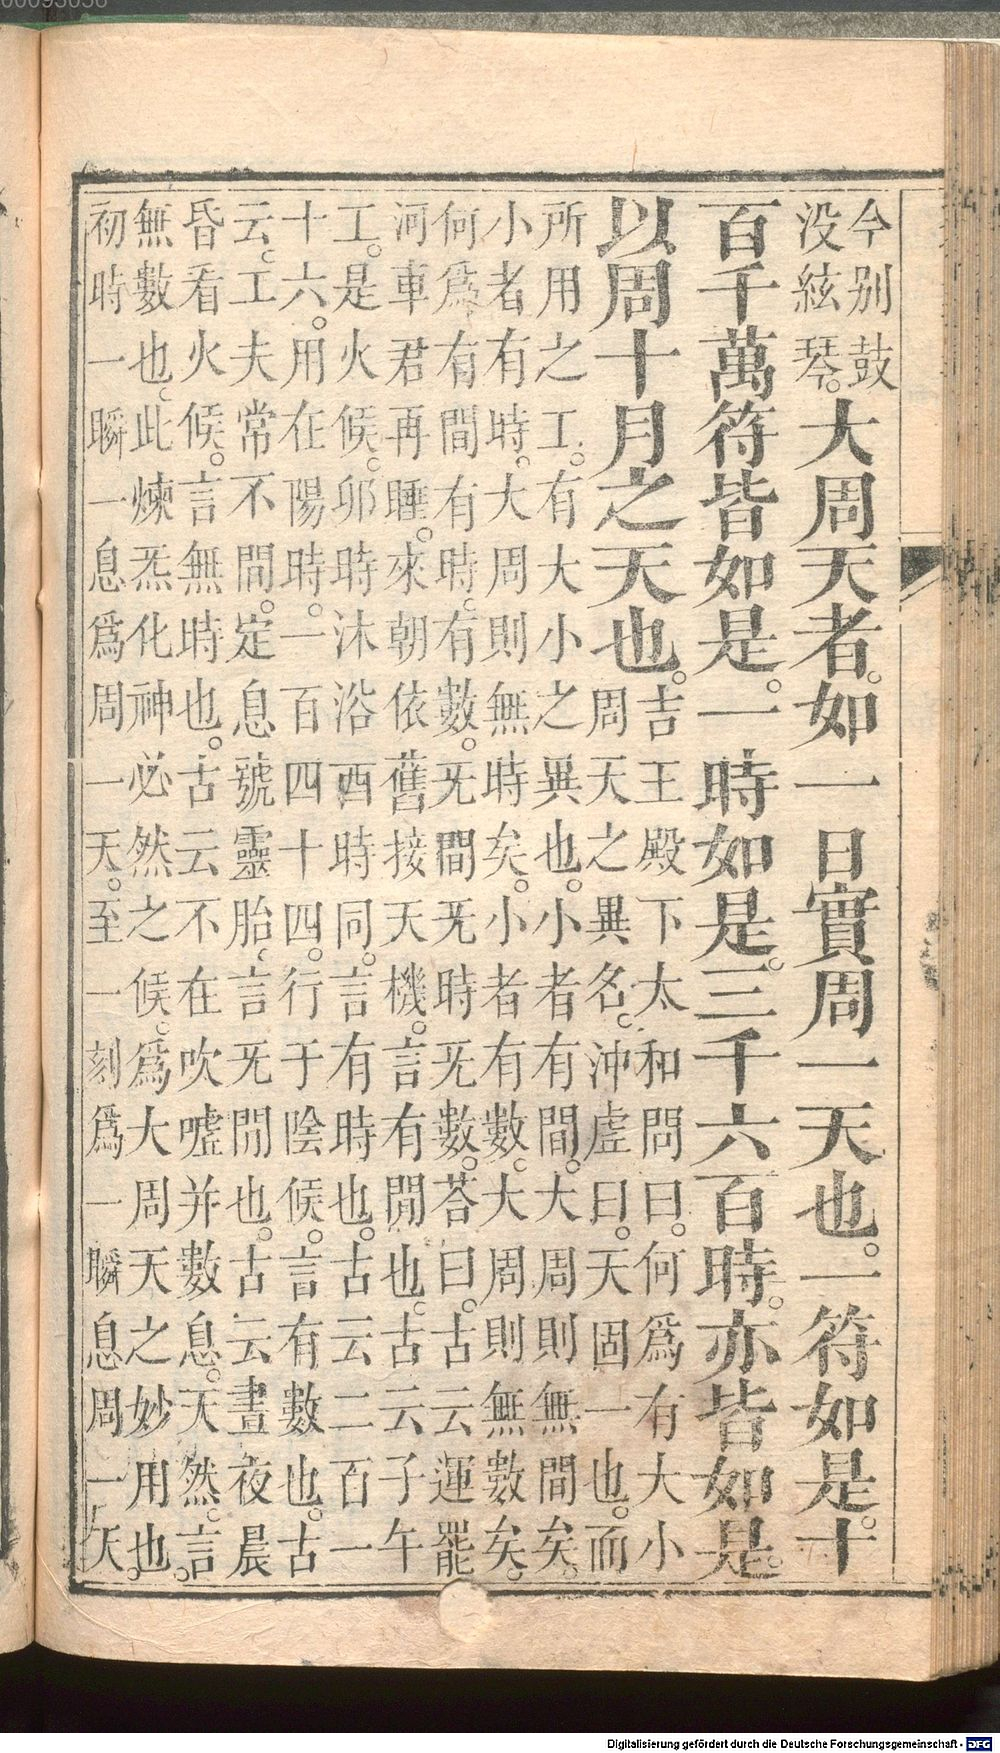 00093056
今别鼓
没絃琴。大周天者。如一日實周一天也。一符如是。十
百千萬符皆如是。一時如是。三千六百時。亦皆如是。
以周十月之天也。吉王殿下太和問曰。何爲有大小
周天之異名。沖虛曰。天固一也。而
所用之工。有大小之異也。小者有間。大周則無間矣。
小者有時。大周則無時矣。小者有數。大周則無數矣。
何爲有間有時。有數。旡間旡時旡數。荅曰。古云運罷
河車君再睡。來朝依舊接天機。言有閒也。古云子午
工。是火候。卯時沐浴酉時同。言有時也。古云二百一
十六。用在陽時。一百四十四。行于陰候。言有數也。古
云。工夫常不間。定息號靈胎。言旡閒也。古云晝夜晨
昏看火候。言無時也。古云不在吹噓并數息。天然。言
無數也。此煉炁化神必然之候。爲大周天之妙用也。
初時一瞬一息爲周一天。至一刻爲一瞬息周一天。
Digitalisierung gefördert durch die Deutsche Forschungsgemeinschaft - DFG